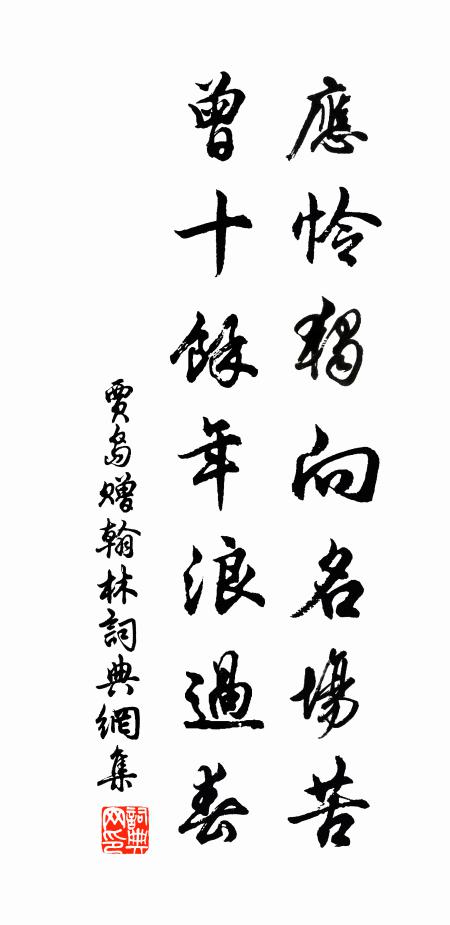 應憐獨向名場苦
曾十餘年浪過春
賈島贈翰林詞典網集
詞典網印